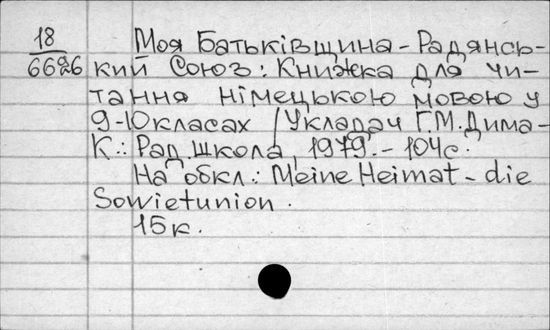 18
Моя Батьківщина - Радянсь-
6626 кий Союз: Книжка для чи-
тання німецькою мовою у
9-10 класах / Укладач Г.М. Дима.-
К.: Рад. школа, 1979. - 104 с.
На обкл.: Meine Heimat - die
Sowietunion.
15 к.